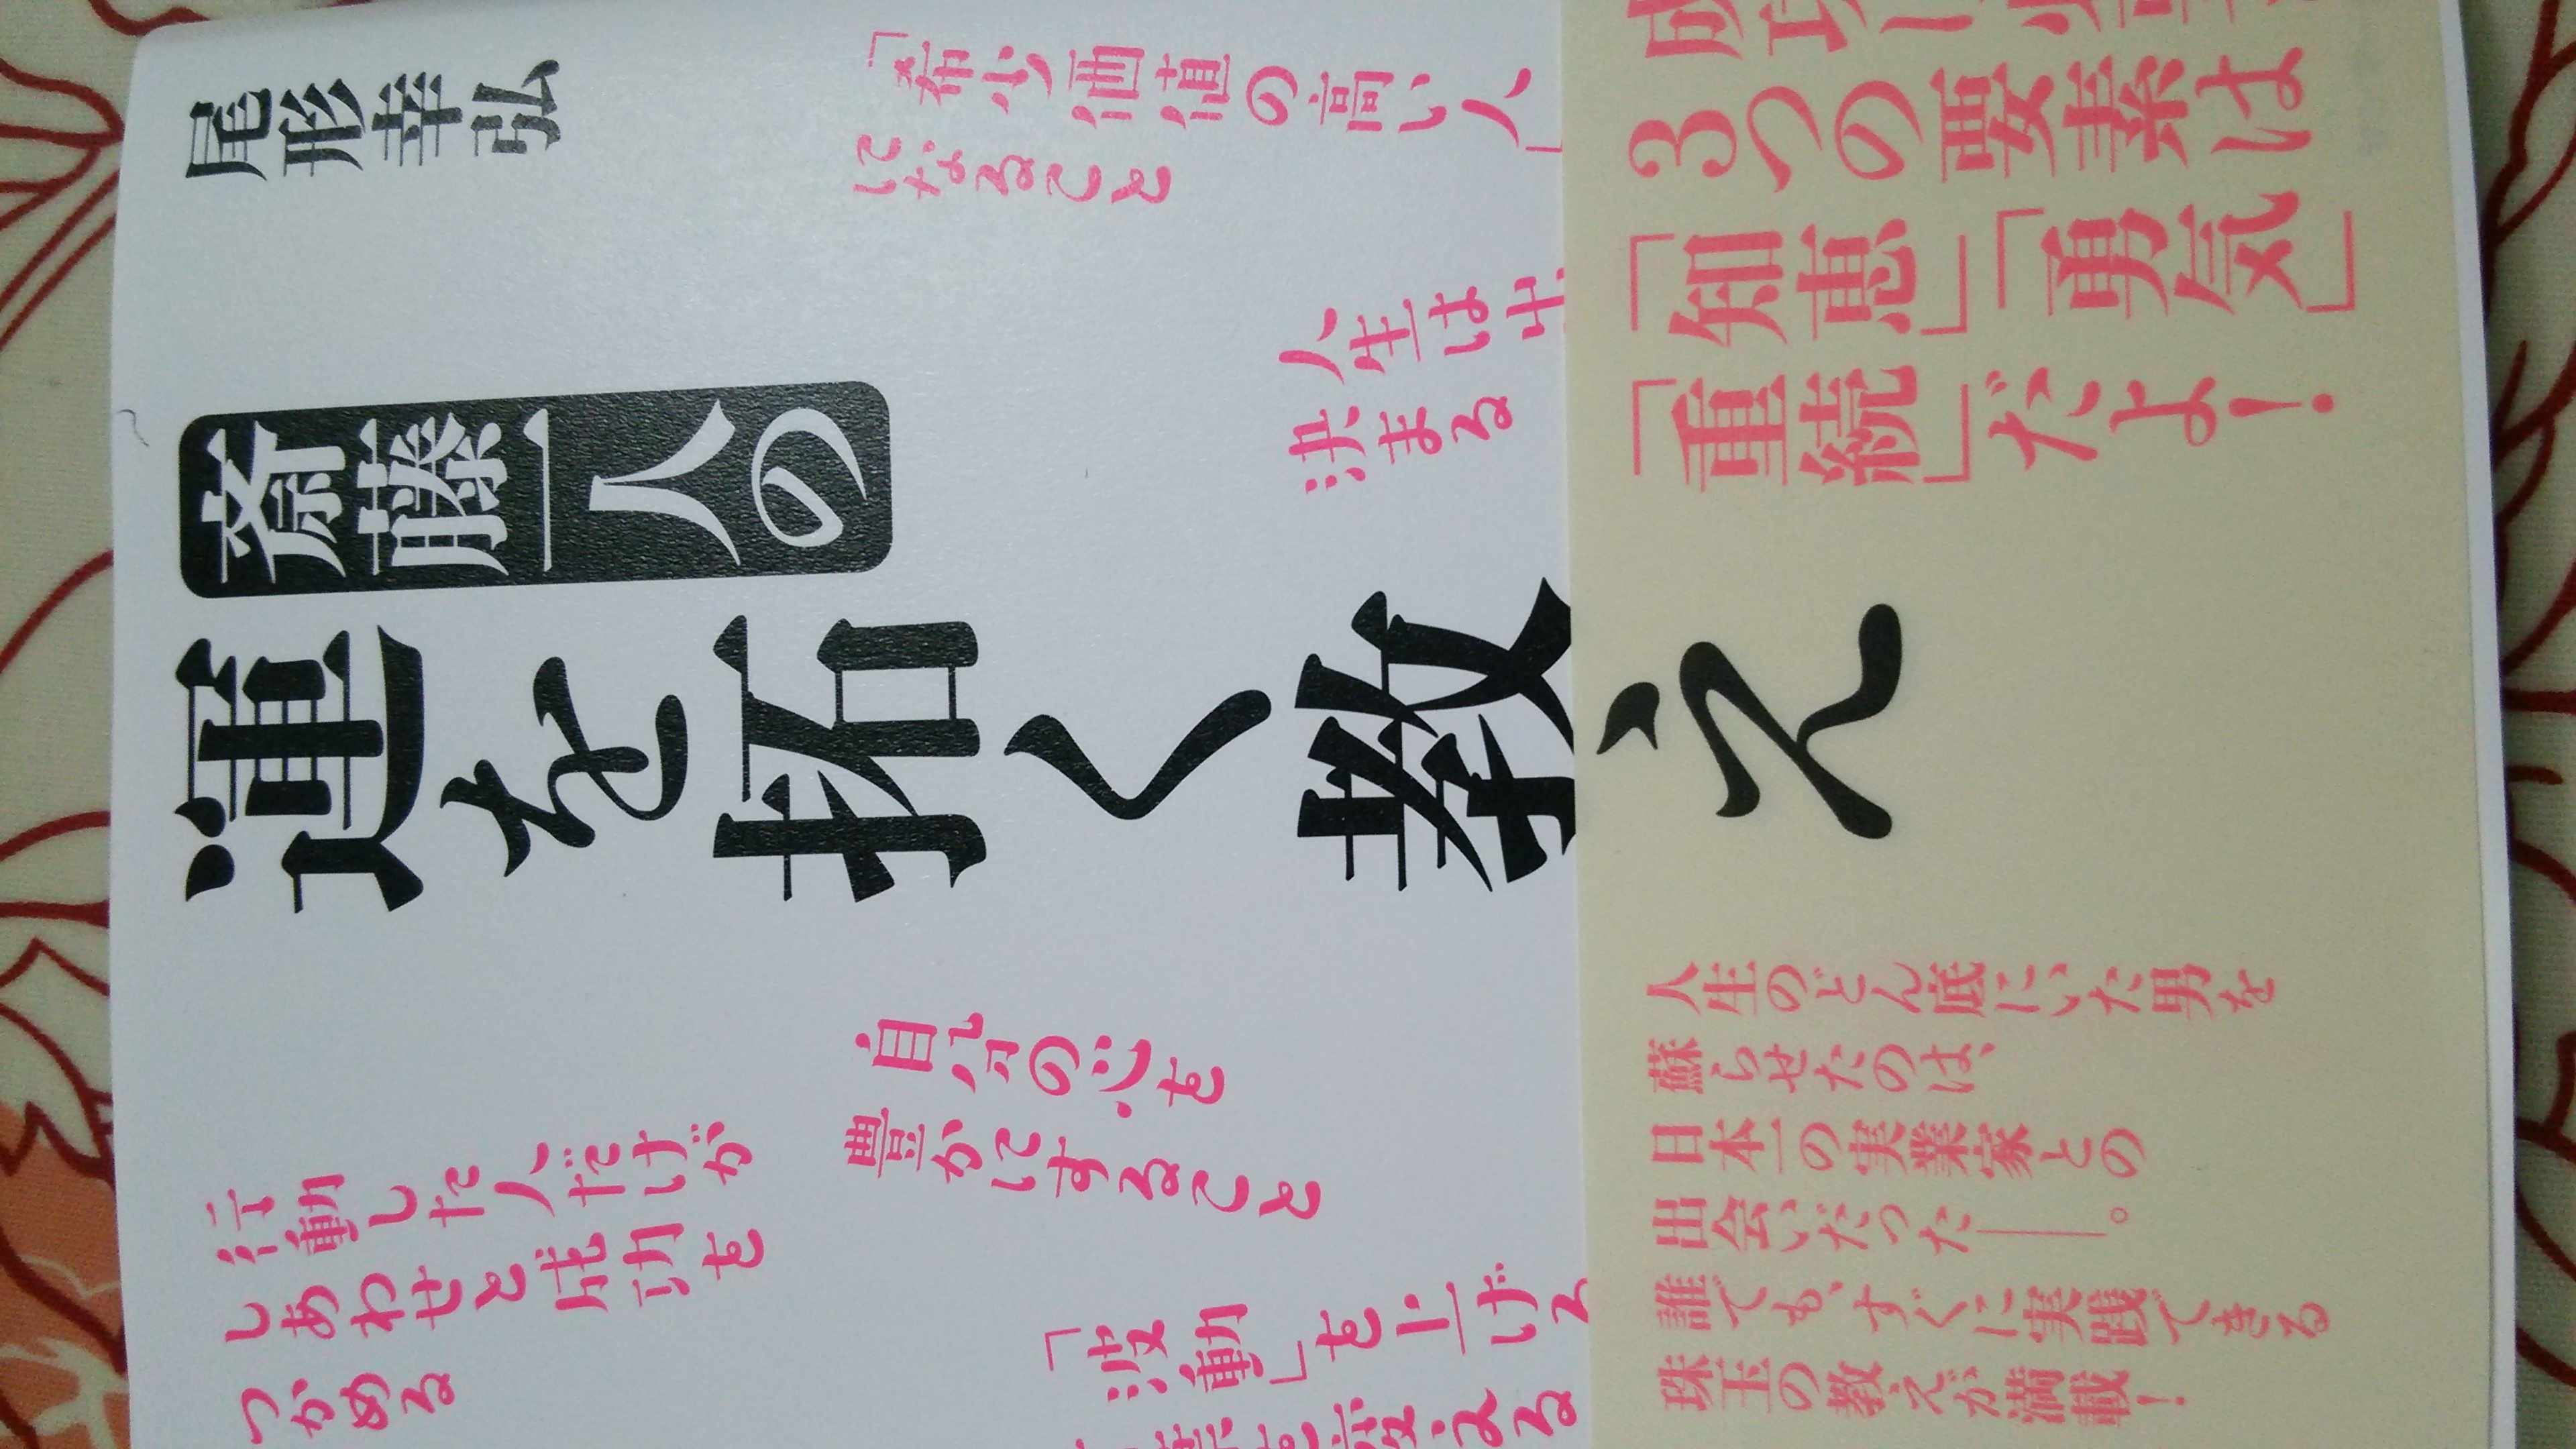 尾形幸弘
「希少価値の高い人」
になること
人生は
決まる
斎藤一人の
運を拓く教え
自分の心を
豊かにすること
行動した人だけが
しあわせと成功を
つかめる
「波動」を上げる
を変える
3つの要素は
「知恵」「勇気」
「重続」だよ!
人生のどん底にいた男を
蘇らせたのは、
日本一の実業家との
出会いだった──。
誰でも、すぐに実践できる
珠玉の教えが満載!